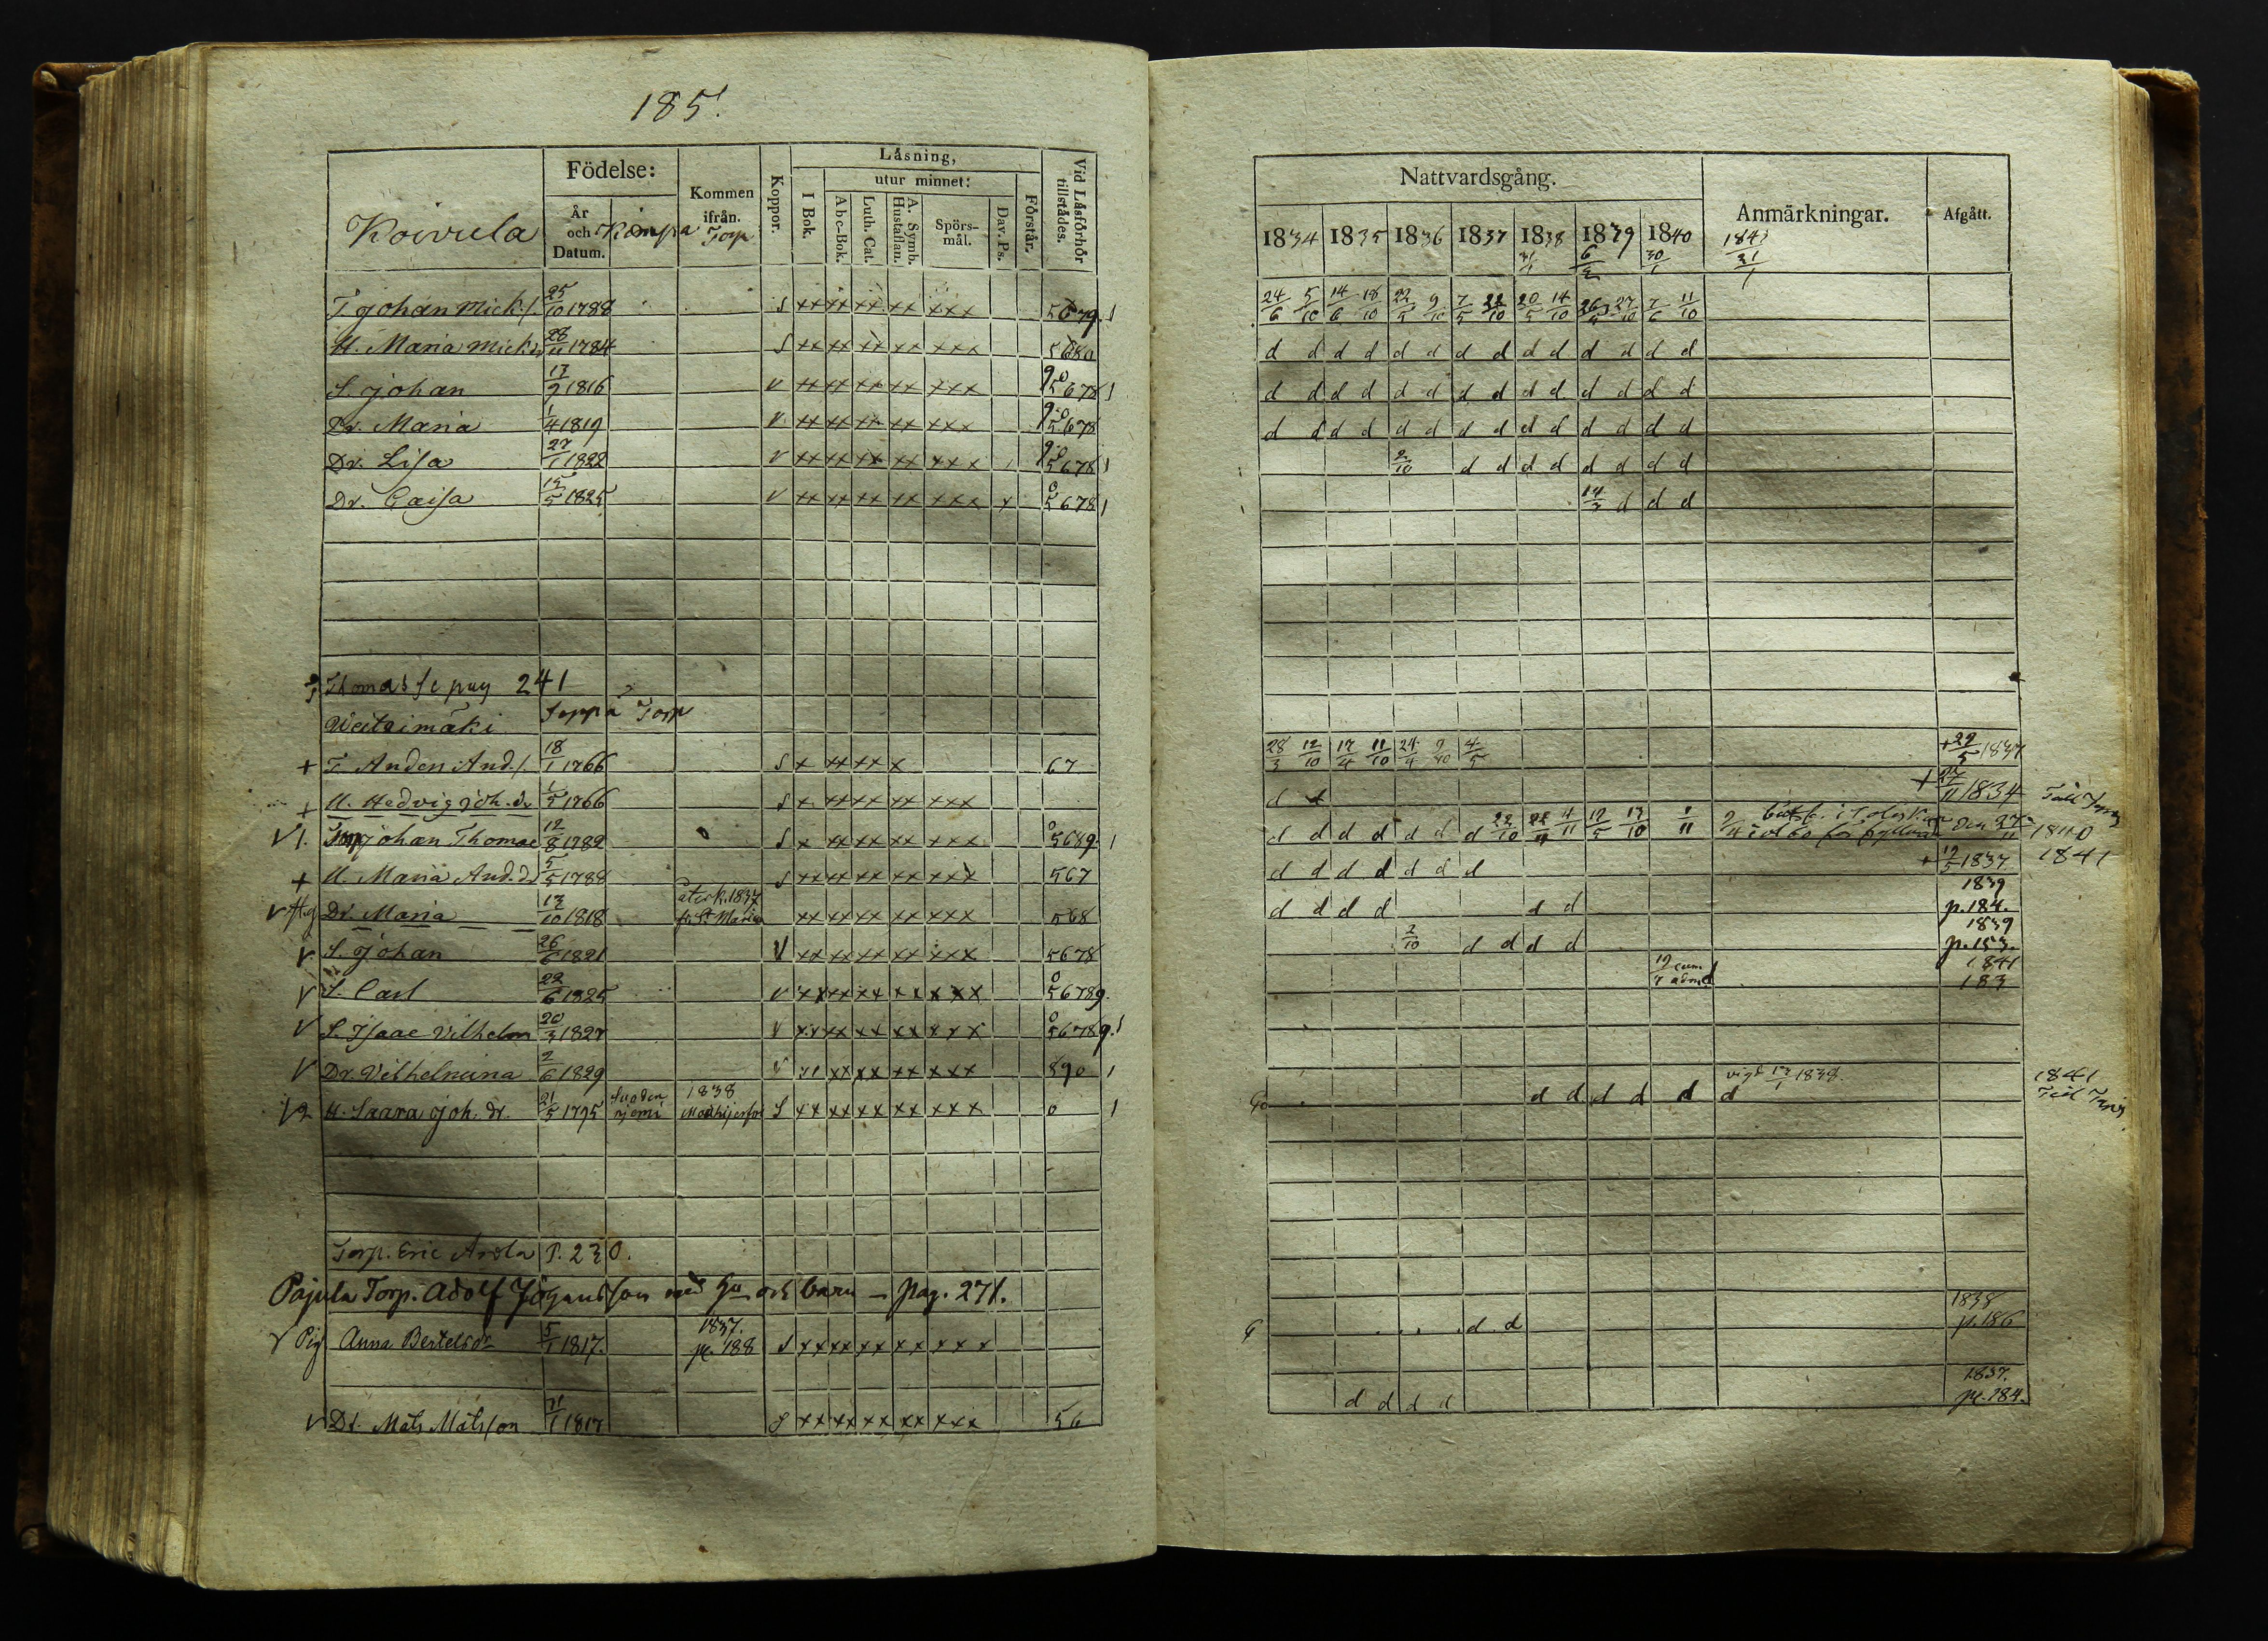 185.
Koivula
Födelse:
År och Datum.
Kömpä Torp
Kommen ifrån.
Koppor.
Läsning,
I Bok.
utur minnet:
Abc-Bok.
Luth. Cat.
A. Symb. Hustaflan.
Spörs-mål.
Dav. Ps.
Förstår.
Vid Läsförhör tillstädes.
T. Johan Mick.s. 25/10 1788 S xx xx xx xx xxx 5679.
H. Maria Mick.dr 28/11 1784 S xx xx xx xx xxx 5680
S. Johan 13/9 1816 V xx xx xx xx xxx 90 5678
Dr. Maria 1/4 1819 V xx xx xx xx xxx 90 5678
Dr. Lisa 27/1 1822 V xx xx xx xx xxx 90 5678
Dr. Caisa 15/5 1825 V xx xx xx xx xxx x 0 5678
Thomas se pag 241
Weitzimäki Seppä Torp
+ T. Anden And.s. 18/1 1766 S x xx xx x 67
+ H. Hedvig Joh.dr 1/5 1766 S x xx xx xx xxx
V 1. Torp Johan Thomae 12/8 1789 S x xx xx xx xxx 0 5689.
+ H. Maria And.dr 5/5 1788 S xx xx xx xx xxx 567
V Dr. Maria 13/10 1818 återk. 1837 fr. St Marie xx xx xx xx xxx 568
V S. Johan 26/6 1821 V xx xx xx xx xxx 5678
V S. Carl 22/6 1825 V xx xx xx xx xxx 0 56789.
V S. Isaac Vilhelm 20/3 1827 V xx xx xx xx xxx 0 56789.
V Dr. Vilhelmina 2/6 1829 V xx xx xx xxx 890
V 2 H. Saara Joh. dr. 21/5 1795 Suoden njemi 1838 S xx xx xx xx xxx 0
Torp. Eric Arola P. 230.
Pajula Torp. Adolf Jöganssson med hu och barn — pag. 271.
V Pig Anna Bertelsdr 5/1 1817. 1837. p. 188 S xx xx xx xx xxx
V Dr. Mats Matsson 1817 S xx xx xx xx xxx 56
Nattvardsgång.
Anmärkningar.
Afgått.
1834 1835 1836 1837 1838 1839 1840 1841
31/1 6/2 30/1 21/1
24/6 5/10 14/6 18/10 22/5 9/10 7/5 22/10 20/5 14/10 26/5 27/10 7/6 11/10
d d d d d d d d d d d d d d
d d d d d d d d d d d d d d
d d d d d d d d d d d d d d
2/10 d d d d d d d d
14/3 d d d
28/3 12/10 17/4 11/10 24/4 9/10 4/5 + 29/5 1837
d + 27/11 1834
d d d d d d d 22/10 4/11 12/5 13/10 1/11 2/4 den 27/11 1840
d d d d d d d + 19/5 1837 1841
d d d d d d 1839 p. 184.
2/10 d d d d 1839 p. 153.
19/7 cum adm. 1841 183
d d d d d d vigd 1838. 1841
d d 1838 p. 186
d d d d 1837. p. 184.